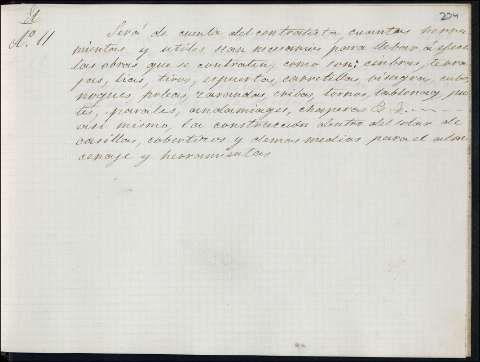 204
Nº. 11
Será de cuenta del contratista cuantas herra
mientas y utiles sean necesarios para llebar á efecto
las obras que se contraten, como son: cimbras, terra
jas, lias, tiros, espuertas, carretillas, vinagra, cubos,
noques, poleas, zarandas, cribas, tornos, tablones, puen
tes, parales, andamiages, chaperas &. &.
asi mismo, la construcción dentro del solar de
casillas, cobertizos y demas medios para el alma
cenaje y herramientas